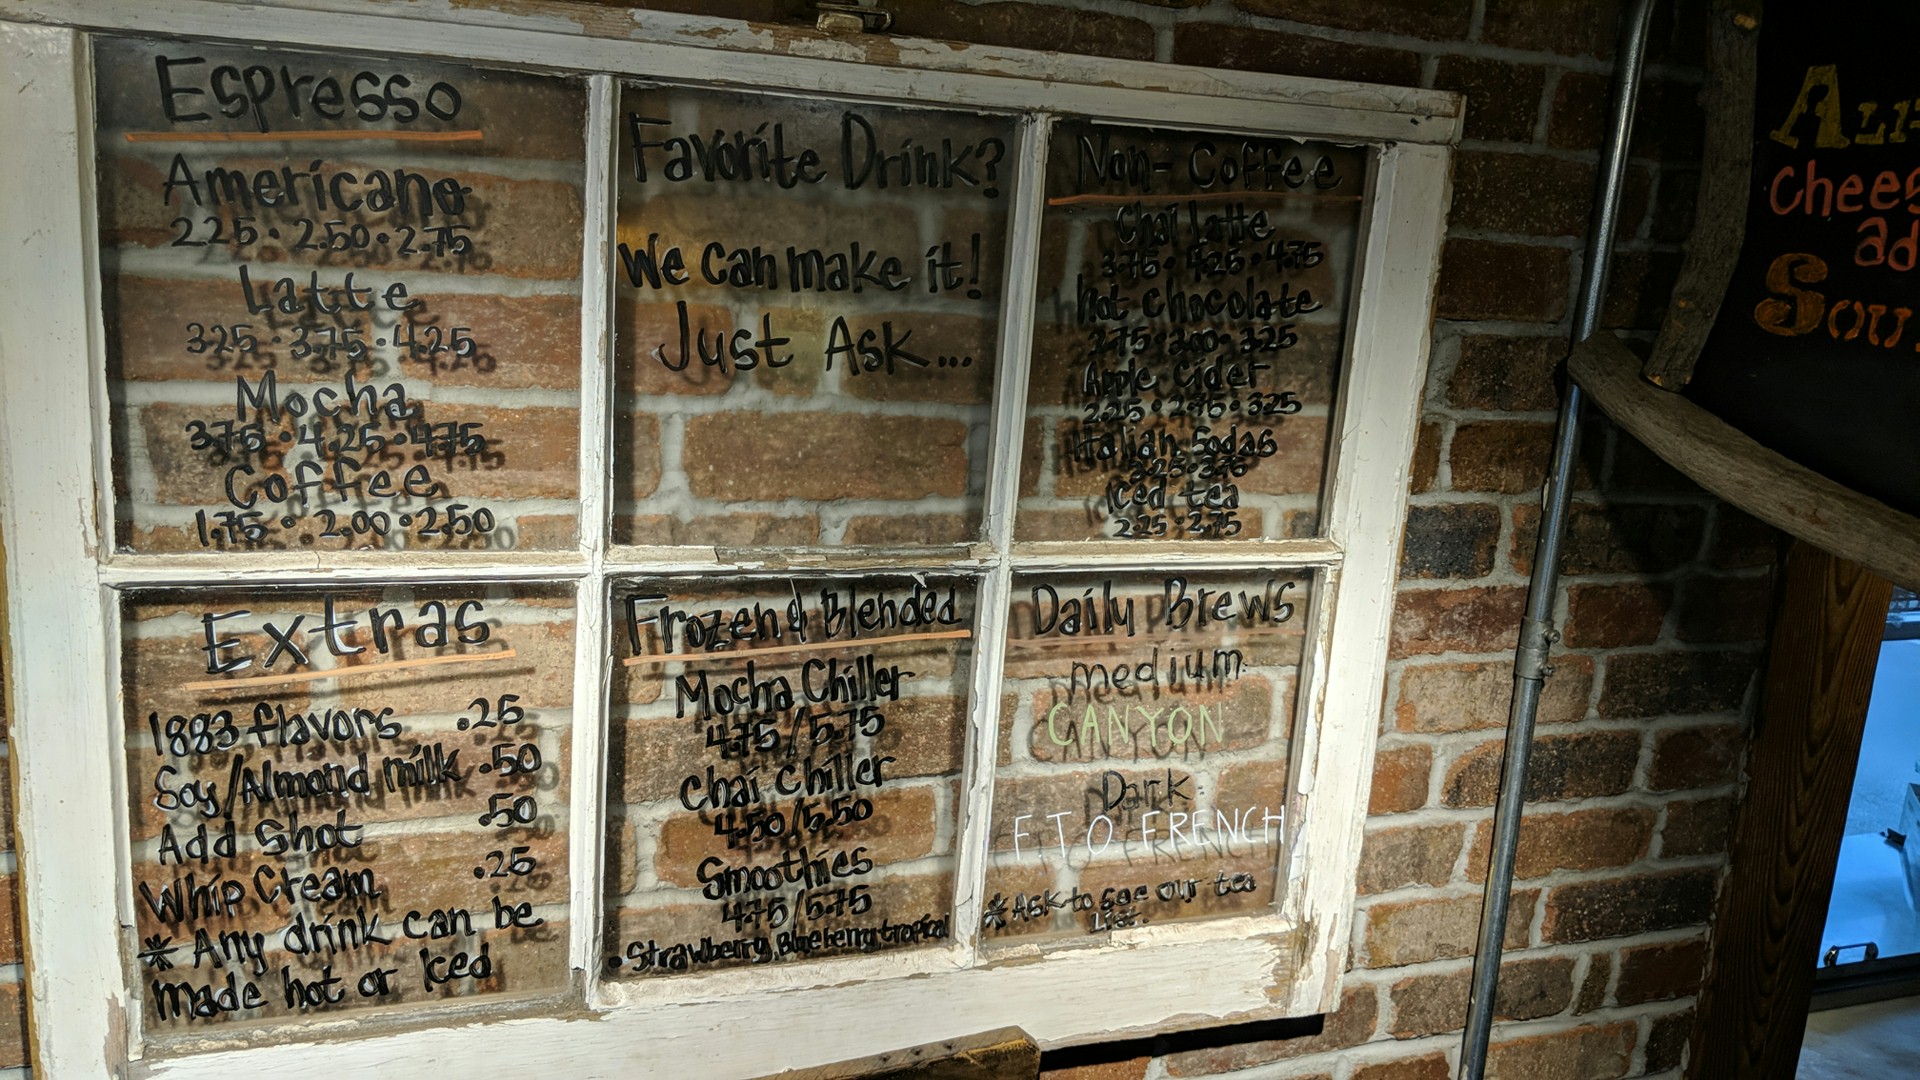 Espresso
Americano
2.25 • 2.50 • 2.75
Latte
3.25 • 3.75 • 4.25
Mocha
3.75 • 4.25 • 4.75
Coffee
1.75 • 2.00 • 2.50
Favorite Drink?
We Can make it!
Just Ask...
Non-Coffee
Chai Latte
3.75 • 4.25 • 4.75
hot chocolate
2.75 • 3.00 • 3.25
Apple Cider
2.25 • 2.75 • 3.25
Italian Sodas
3.25 • 3.75
Iced tea
2.25 • 2.75
Extras
1883 flavors .25
Soy/Almond milk .50
Add Shot .50
Whip Cream .25
* Any drink can be
made hot or Iced
Frozen & Blended
Mocha Chiller
4.75/5.75
Chai Chiller
4.50/5.50
Smoothies
4.75/5.75
• Strawberry, Blueberry, tropical
Daily Brews
medium
CANYON
Dark
FTO FRENCH
* Ask to see our tea
List.